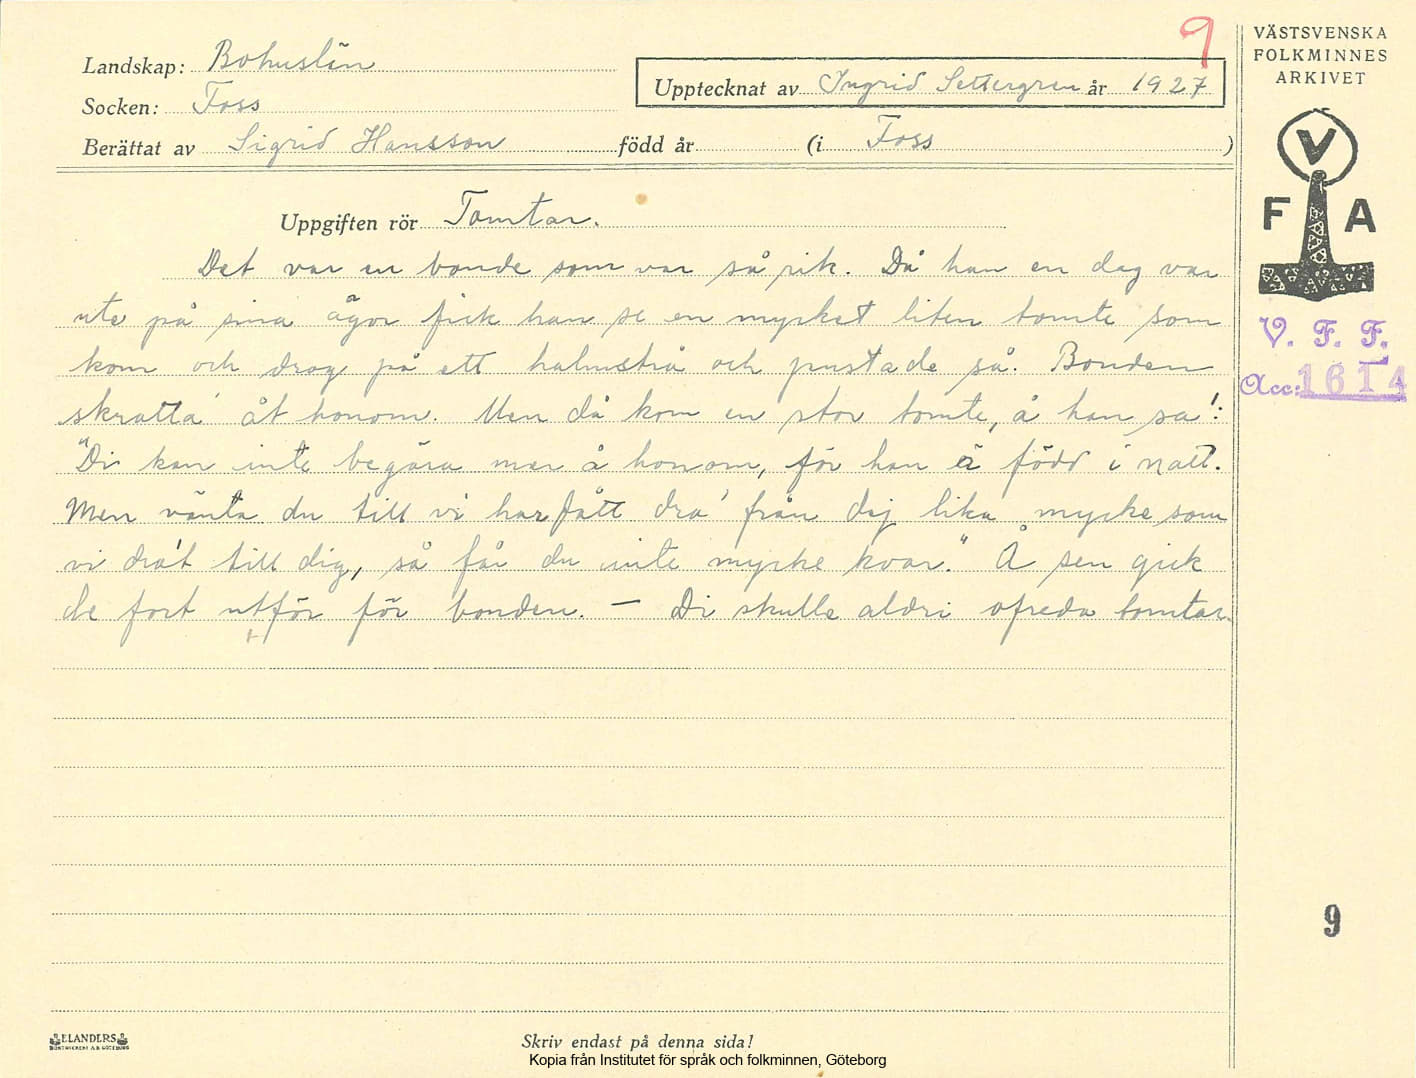 9
VÄSTSVENSKA
FOLKMINNES
ARKIVET
Landskap: Bohuslän
Upptecknat av Ingrid Settergren år 1927
Socken: Foss
Berättat av Sigrid Hansson född år (i Foss )
V
F A
Uppgiften rör Tomtar.
Det var en bonde som var så rik. Då han en dag var
ute på sina ägor fick han se en mycket liten tomte som
kom och drog på ett halmstrå och pustade så. Bonden
skratta' åt honom. Men då kom en stor tomte, å han sa':
"Di kan inte begära mer å honom, för han ä född i natt.
Men vänta du till vi har fått dra' från dej lika mycke som
vi dra't till dig, så får du inte mycke kvar." Å sen gick
de fort utför för bonden. — Di skulle aldri ofreda tomtar.
V. F. F.
Acc: 1614
9
ELANDERS
BOKTRYCKERI A.B. GÖTEBORG
Skriv endast på denna sida!
Kopia från Institutet för språk och folkminnen, Göteborg